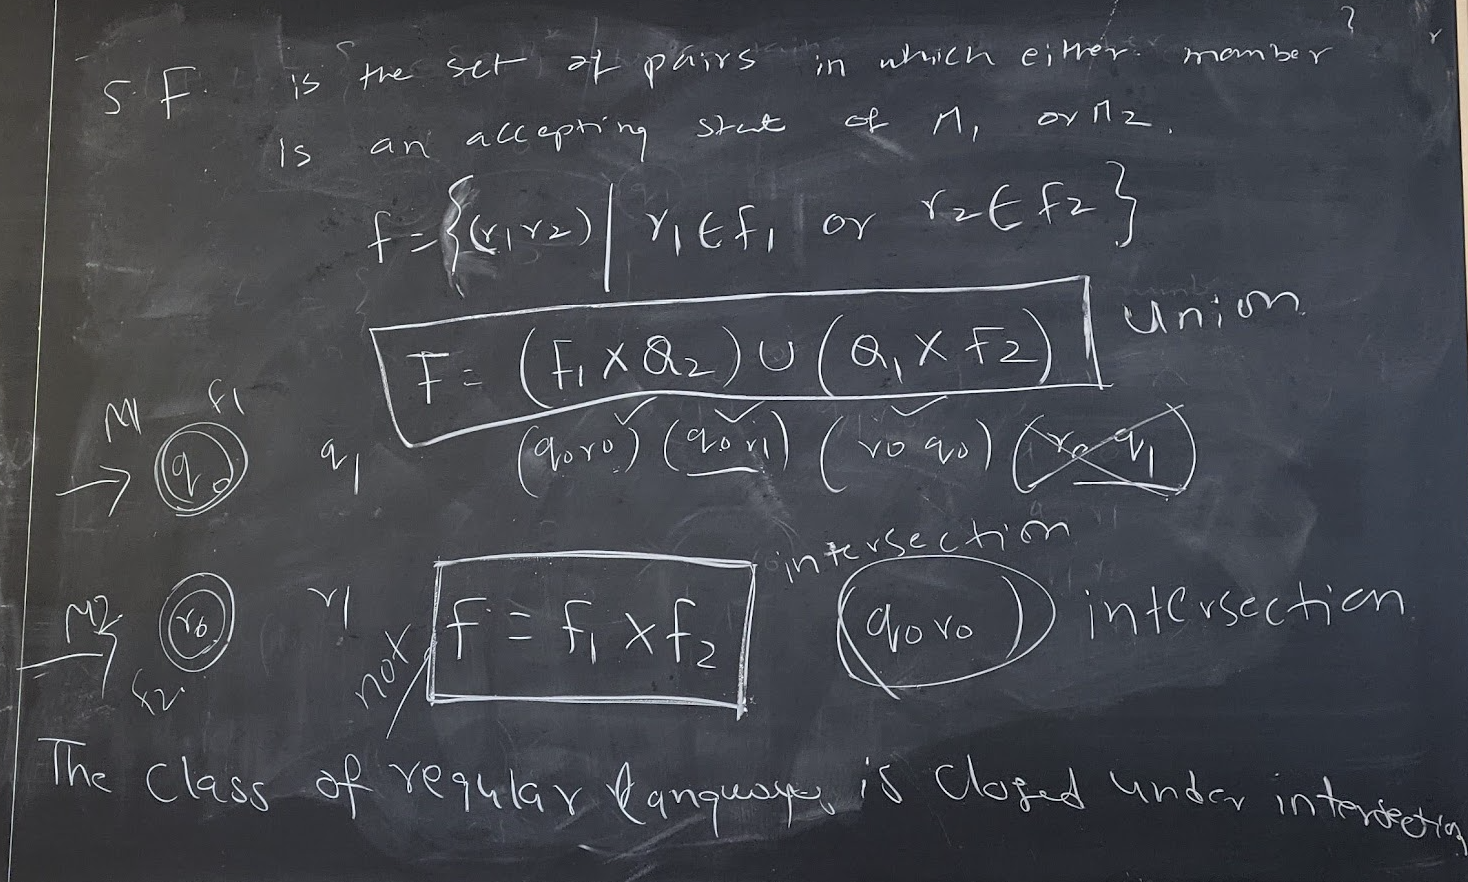 5. F. is the set of pairs in which either member
is an accepting stat of M1 or M2.
f = {(r1 r2) | r1 ∈ f1 or r2 ∈ f2}
F = (F1 × Q2) ∪ (Q1 × F2) Union
M1 f1
q0 q1 (q0 r0) (q0 r1) (r0 q0) (r0 q1)
intersection
M2 r0 r1 not F = F1 × F2 (q0 r0) intersection
f2
The class of regular language is closed under intersection